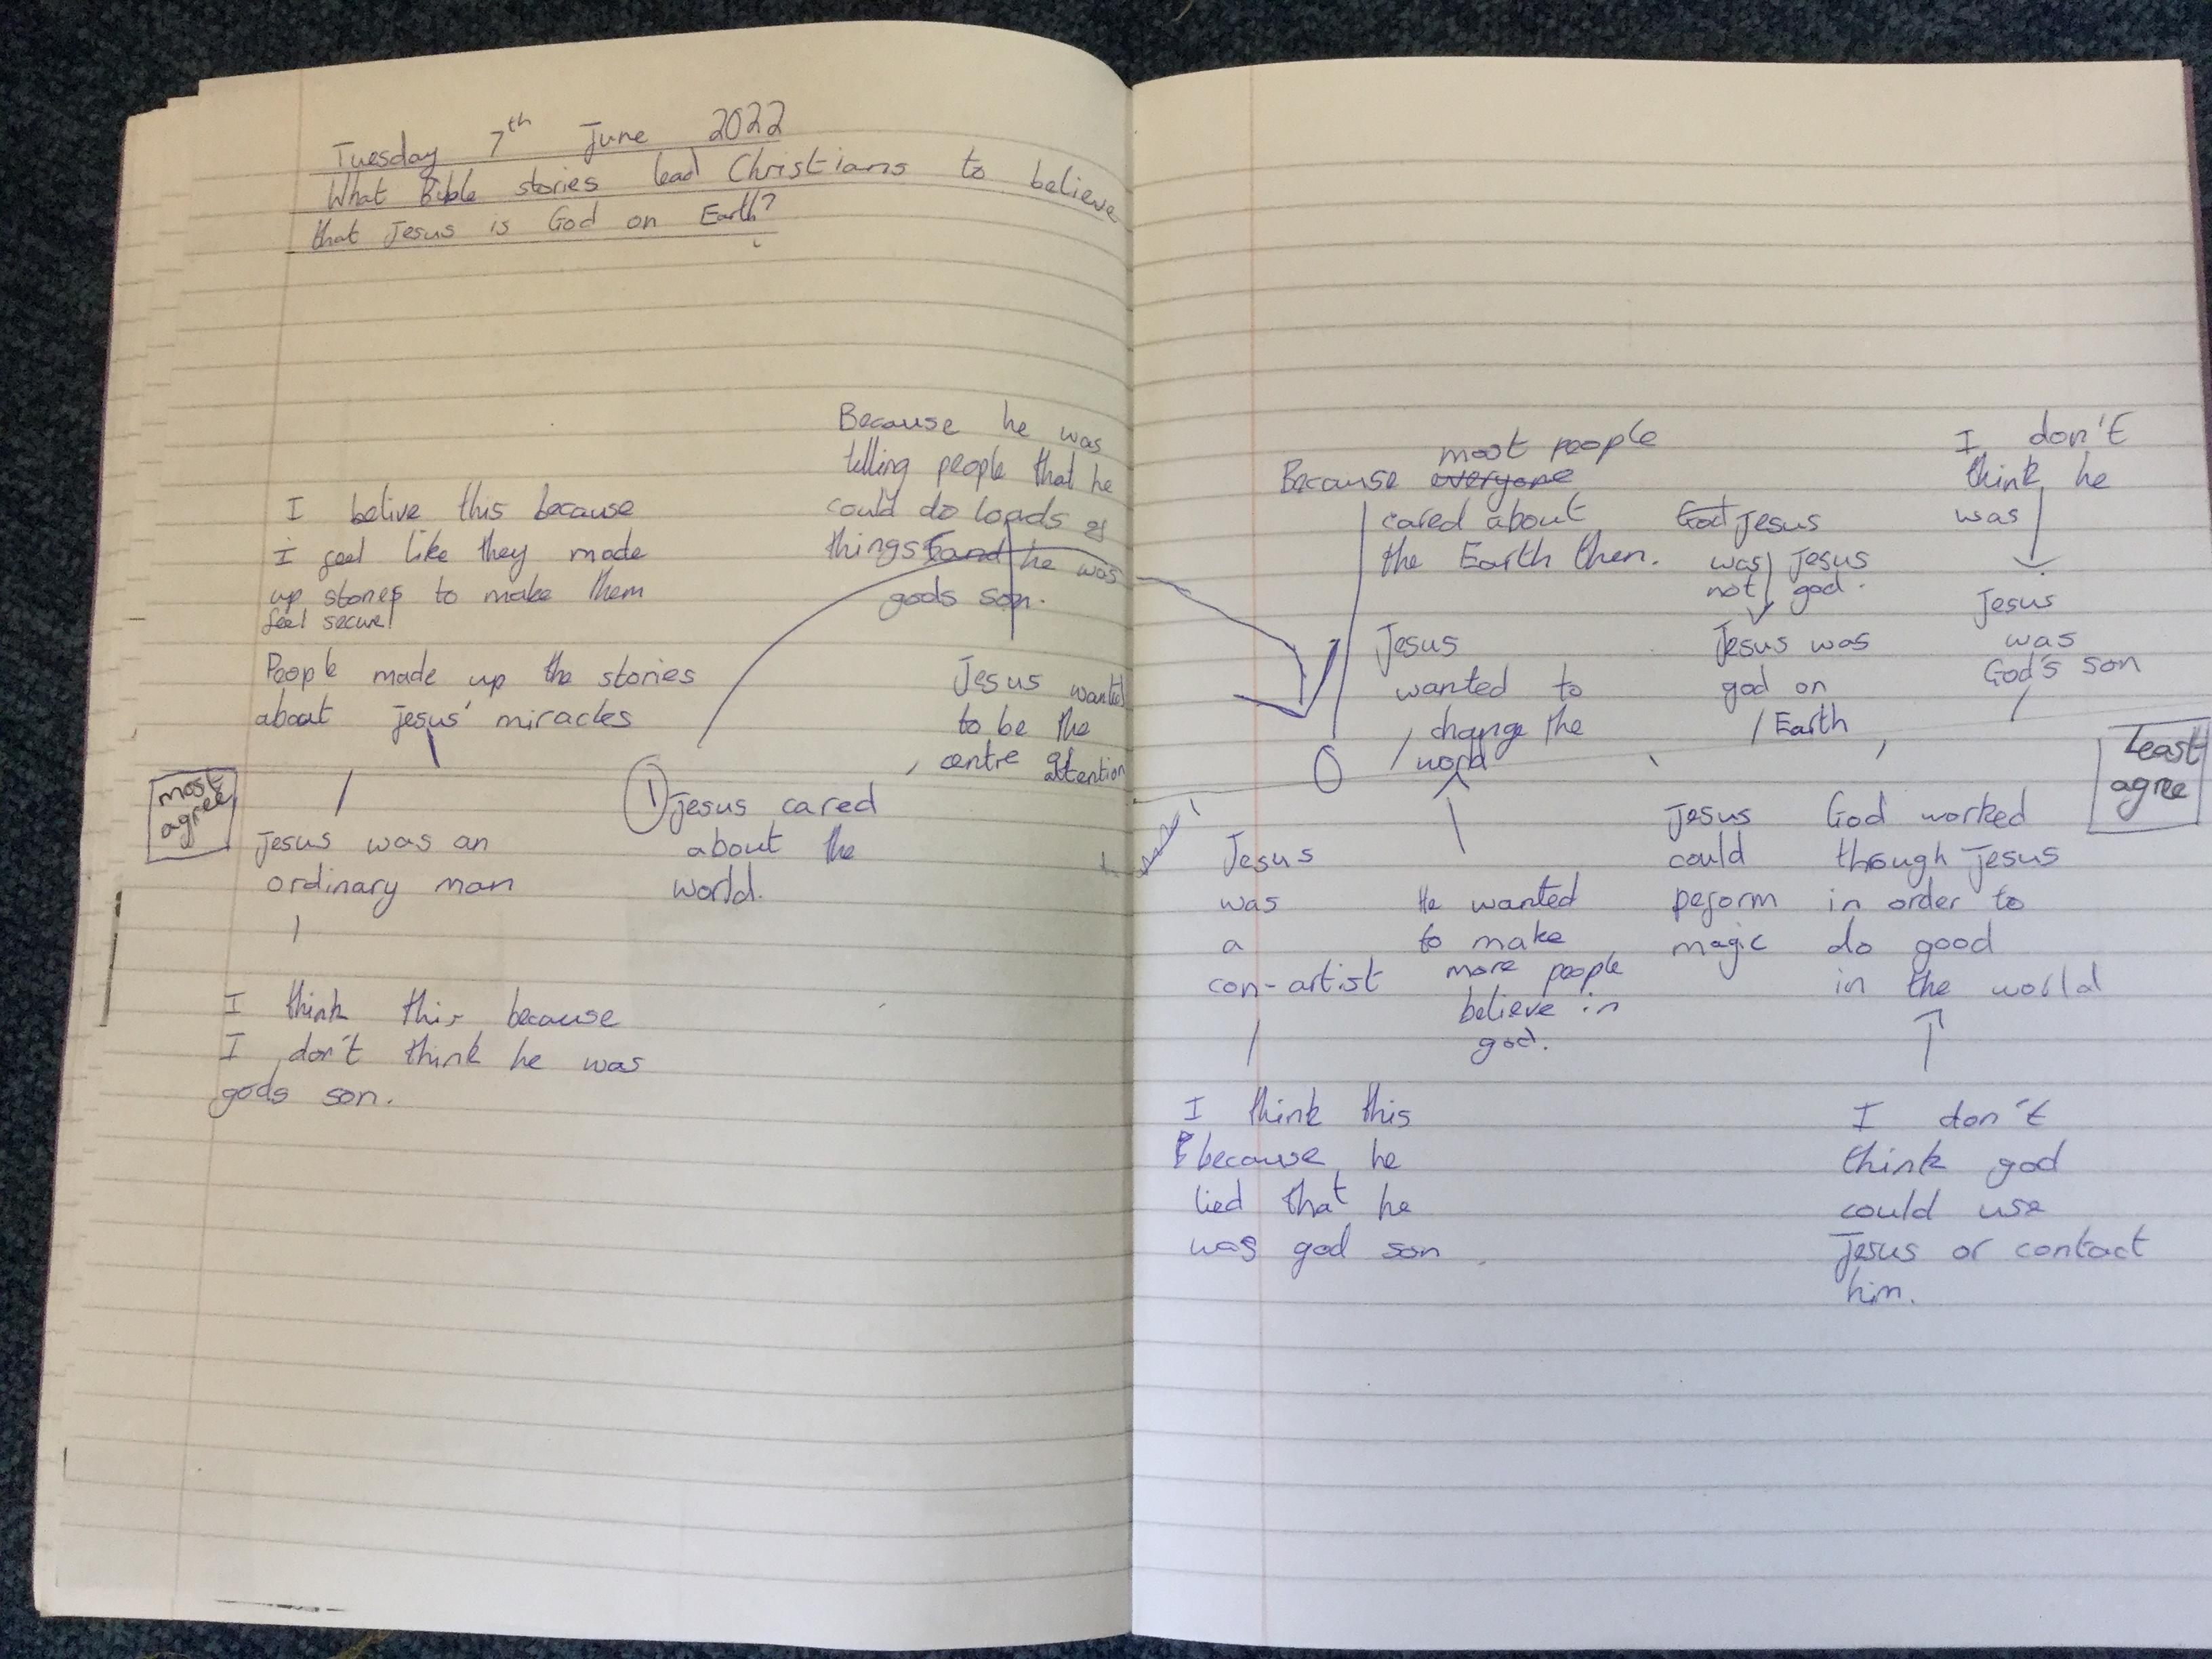 Tuesday 7th June 2022
What Bible stories lead Christians to believe
that Jesus is God on Earth?
I belive this because
i feel like they made
up stories to make them
feel secure
People made up the stories
about jesus' miracles
most
agree
Jesus was an
ordinary man
I think this because
I don't think he was
gods son.
Because he was
telling people that he
could do loads of
things and he was
gods son.
Jesus wanted
to be the
centre of
attention
1 Jesus cared
about the
world.
most people
Because everyone
cared about
the Earth then.
0
Jesus
wanted to
change the
world
He wanted
to make
more people
believe in
god.
Jesus
was
a
con-artist
I think this
because he
lied that he
was god son
God Jesus
was Jesus
not god.
Jesus was
god on
Earth
Jesus
could
peform
magic
I don't
think he
was
Jesus
was
God's son
God worked
though Jesus
in order to
do good
in the world
I don't
think god
could use
Jesus or contact
him.
Least
agree